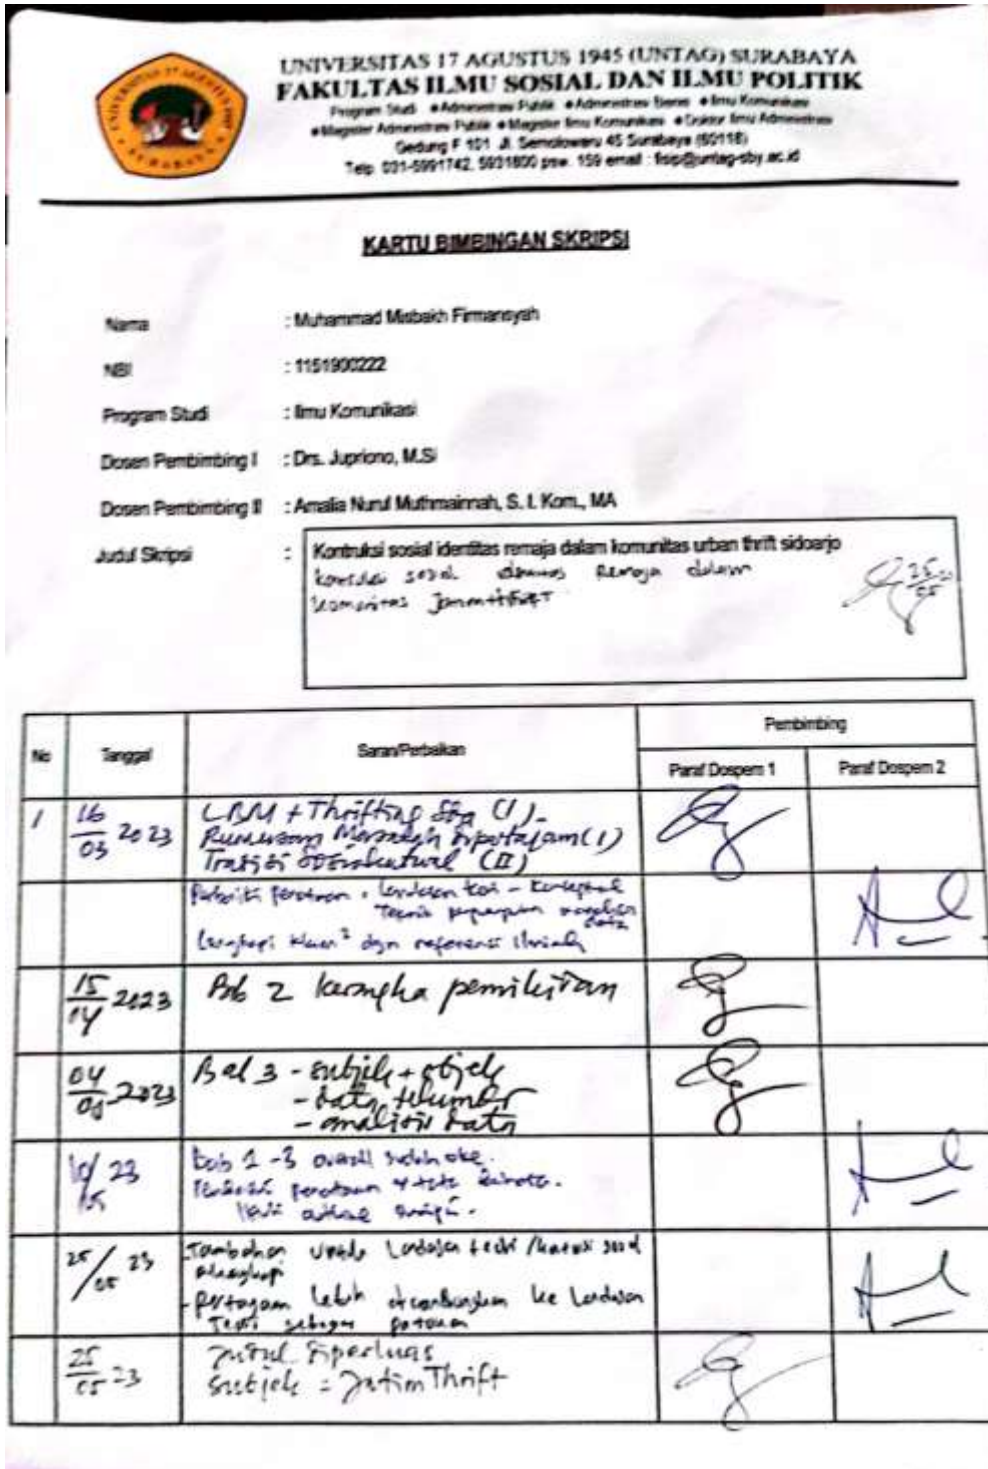 UNIVERSITAS 17 AGUSTUS 1945 (UNTAG) SURABAYA
FAKULTAS ILMU SOSIAL DAN ILMU POLITIK
Program Studi • Administrasi Publik • Administrasi Bisnis • Ilmu Komunikasi
• Magister Administrasi Publik • Magister Ilmu Komunikasi • Doktor Ilmu Administrasi
Gedung F 101 Jl. Semolowaru 45 Surabaya (60118)
Telp. 031-5991742, 5931800 psw. 159 email : fisip@untag-sby.ac.id
KARTU BIMBINGAN SKRIPSI
Nama : Muhammad Misbakh Firmansyah
NBI : 1151900222
Program Studi : Ilmu Komunikasi
Dosen Pembimbing I : Drs. Jupriono, M.Si
Dosen Pembimbing II : Amalia Nurul Muthmainnah, S. I. Kom., MA
Judul Skripsi : Kontruksi sosial identitas remaja dalam komunitas urban thrift sidoarjo
sosial identitas Remaja dalam
komunitas
25/05
No Tanggal Saran/Perbaikan Pembimbing
Paraf Dospem 1 Paraf Dospem 2
1 16/03 2023 LBM + Thrifting Sby (I)
Rumusan Masalah dipertajam (I)
(II)
landasan teori - konseptual
Teknik data
Lengkapi dgn referensi ilmiah
15/04 2023 Bab 2 kerangka pemikiran
04/05 2023 Bab 3 - subjek + objek
- data sekunder
- analisis data
10/05 23 Bab 1 - 3 overall sudah oke.
penataan + tata
25/05 23 Tambahan untuk Landasan teori
dilengkapi
- pertajam Lebih ke Landasan
Teori sebagai
25/05 23 Judul diperluas
Subjek = Jatim Thrift